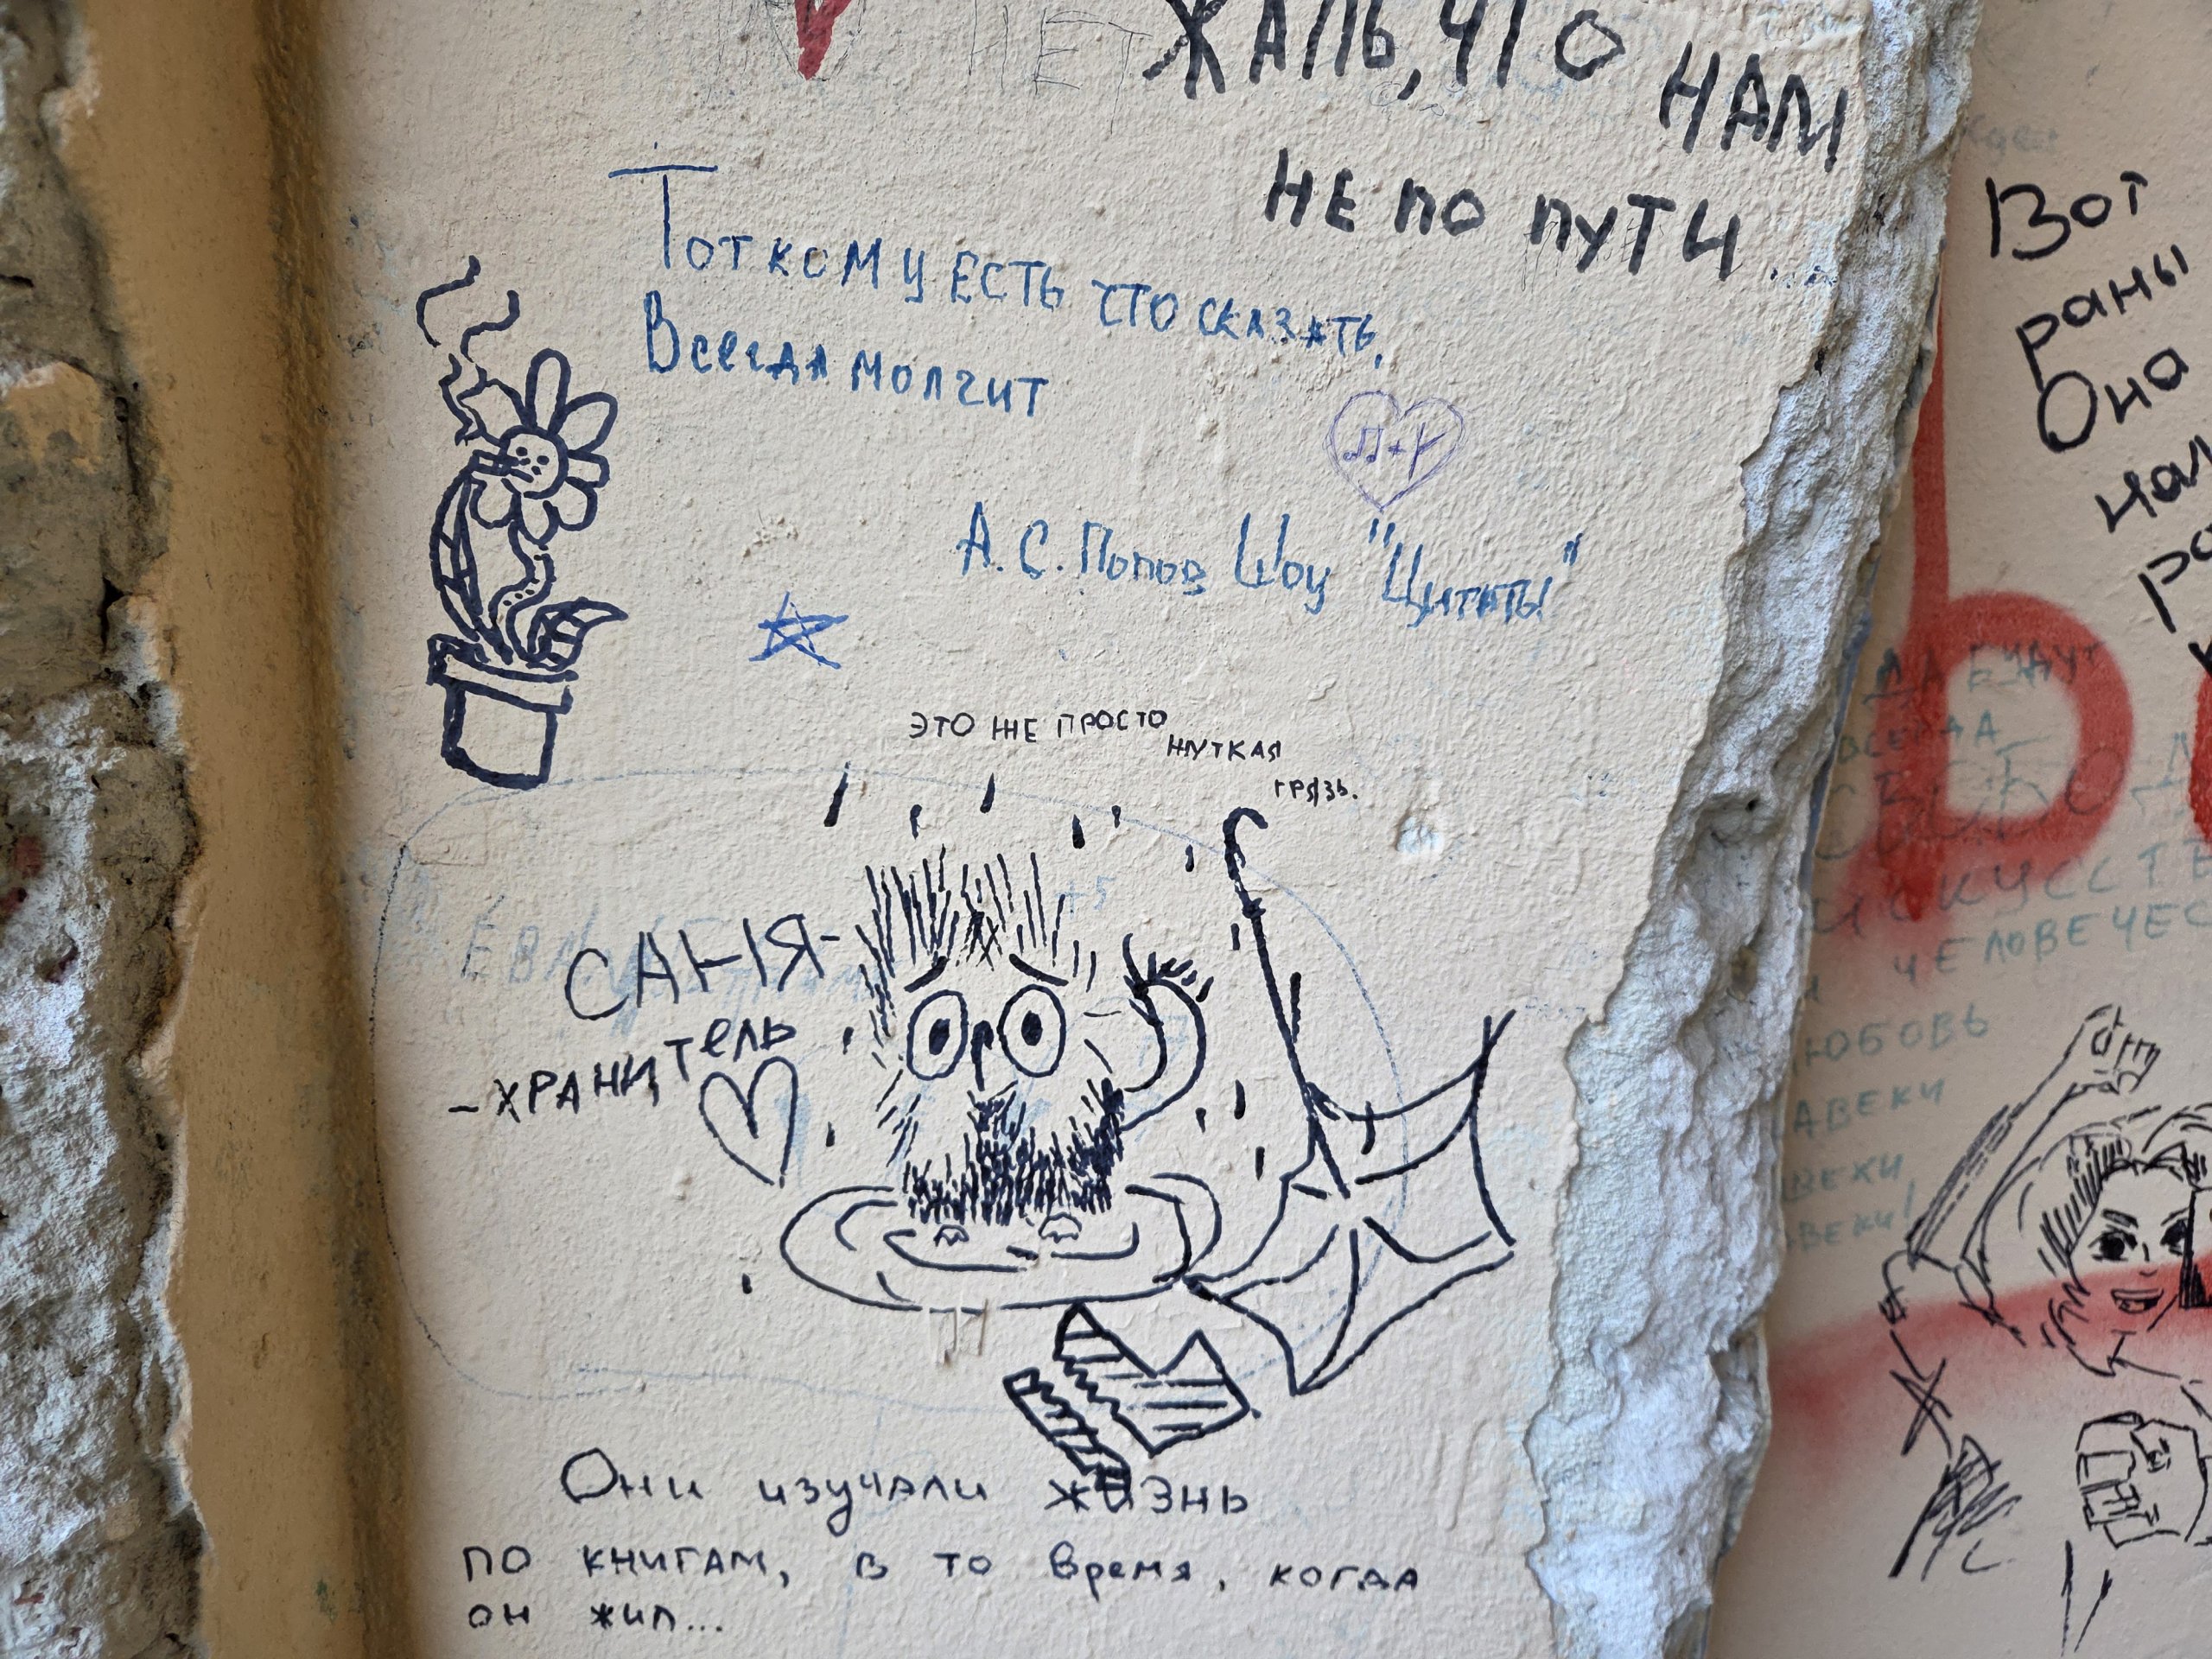 НЕТ
ЖАЛЬ, ЧТО
НАМ
НЕ ПО ПУТИ...
Тот кому есть что сказать,
Всегда молчит
А.С. Попов Шоу "Цитаты"
ЭТО ЖЕ ПРОСТО
ЖУТКАЯ
ГРЯЗЬ.
+5
САНЯ-
-ХРАНИТЕЛЬ
Они изучали жизнь
по книгам, в то время, когда
он жил...
Вот
раны
Она
ДА БУДУТ
ВСЕГДА
СВОБОД
ИСКУССТВ
И ЧЕЛОВЕЧЕС
ЮБОВЬ
АВЕКИ
ВЕКИ
ВЕКИ!